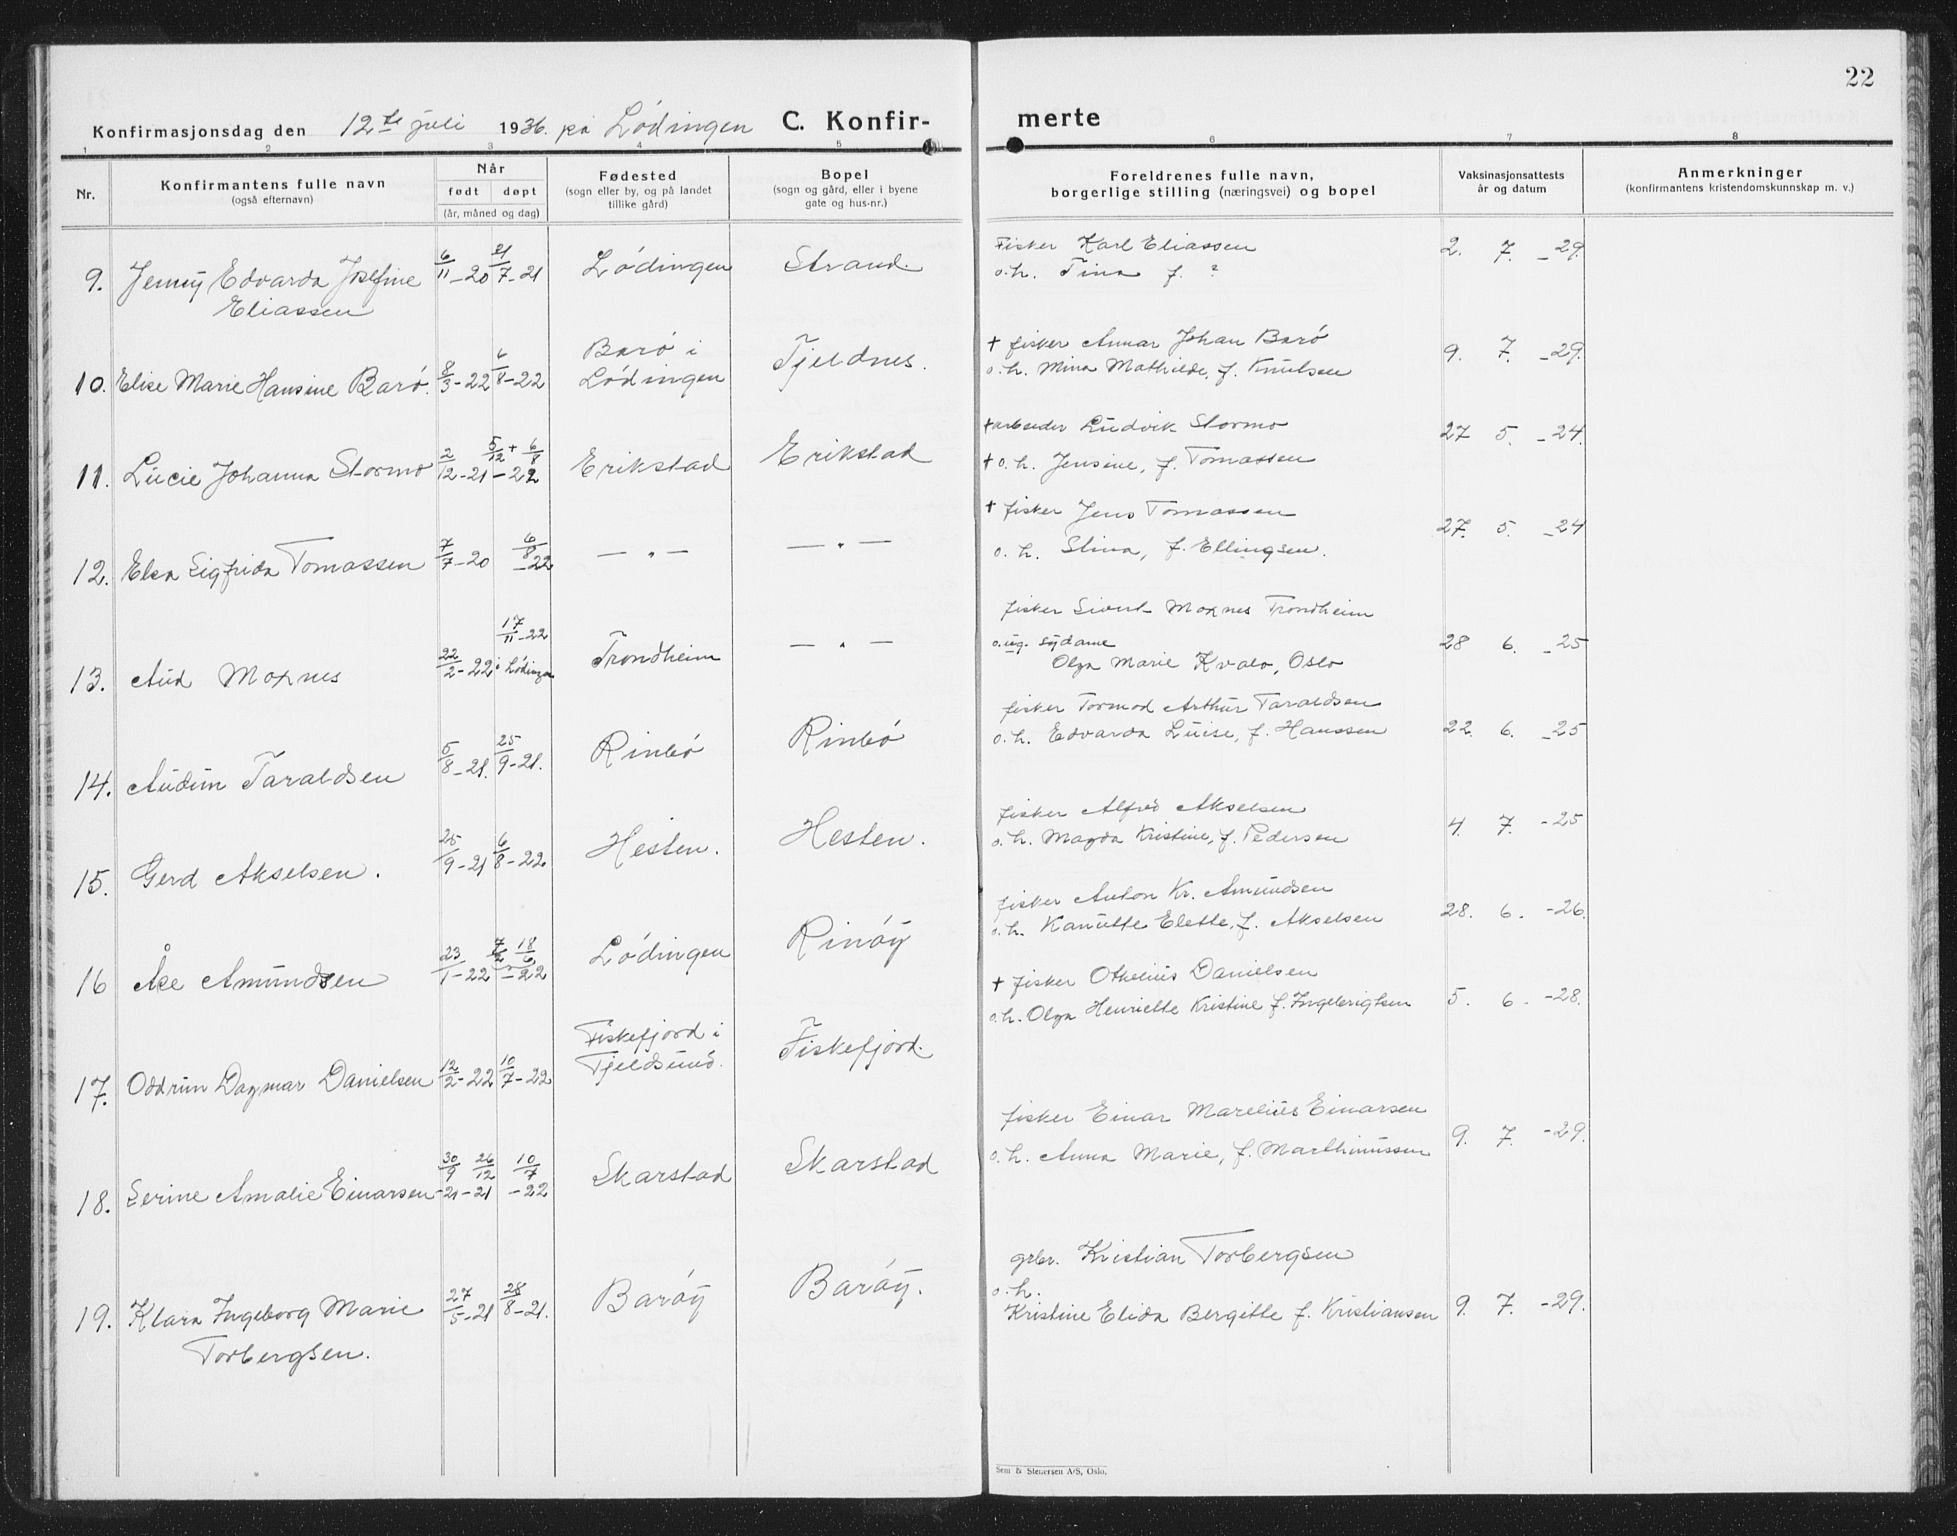 22
Konfirmasjonsdag den 12te juli 1936. på Lødingen C. Konfir-merte
1 2 3 4 5 6 7 8
Nr.
Konfirmantens fulle navn
(også efternavn)
Når
født døpt
(år, måned og dag)
Fødested
(sogn eller by, og på landet
tillike gård)
Bopel
(sogn og gård, eller i byene
gate og hus-nr.)
Foreldrenes fulle navn,
borgerlige stilling (næringsvei) og bopel
Vaksinasjonsattests
år og datum
Anmerkninger
(konfirmantens kristendomskunnskap m. v.)
9. Jenny Edvarda Josefine 6/11-20 21/7-21 Lødingen Strand.
Eliassen
Fisker Karl Eliassen
o. h. Tina f. ?
2. 7. -29.
10. Elise Marie Hansine Barø. 8/3-22 6/8-22
Barø i
Lødingen
Tjeldnes.
+ fisker Annar Johan Barø
o. h. Mina Mathilde, f. Knutsen
9. 7. -29.
11. Lucie Johanna Stormo 2/12-21 5/12 + 6/8-22 Erikstad Erikstad
+ arbeider Ludvik Stormo
+ o. h. Jensine, f. Tomassen
27 5. -24.
12. Elsa Sigfrida Tomassen 7/7-20 6/8-22 — " — — " —
+ fisker Jens Tomassen
o. h. Stina, f. Ellingsen.
27. 5. -24
13. Aud Moxnes 22/2-22 17/11-22 i Lødingen Trondheim — " —
fisker Sivert Moxnes Trondheim
o. ug. sydame
Olga Marie Kvalo, Oslo
28 6. -25
14. Audun Taraldsen 5/8-21. 25/9-21. Rinbø Rinbø
fisker Tormod Arthur Taraldsen
o. h. Edvarda Luise, f. Hanssen
22. 6. -25
15. Gerd Akselsen. 25/9-21 6/8-22. Hesten. Hesten.
fisker Alfred Akselsen
o. h. Magda Kristine, f. Pedersen
4. 7. -25
16 Åse Amundsen 23/1-22 7/2 18/6-22 Lødingen Rinøy
fisker Anton Kr. Amundsen
o. h. Kanutte Elette, f. Akselsen
28. 6. -26.
17. Oddrun Dagmar Danielsen 12/2-22 10/7-22
Fiskefjord i
Tjeldsund.
Fiskefjord.
+ fisker Othelius Danielsen
o. h. Olga Henriette Kristine f. Ingebrigtsen
5. 6. -28.
18. Serine Amalie Einarsen 30/9-21 26/12-21 10/7-22 Skarstad Skarstad
fisker Einar Marelius Einarsen
o. h. Anna Marie, f. Marthinussen
9. 7. -29.
19. Klara Ingeborg Marie 27/5-21 28/8-21. Barøy Barøy.
Torbergsen.
grbr. Kristian Torbergsen
o. h.
Kristine Elida Bergitte f. Kristiansen
9. 7. -29.
Sem & Stenersen A/S, Oslo.